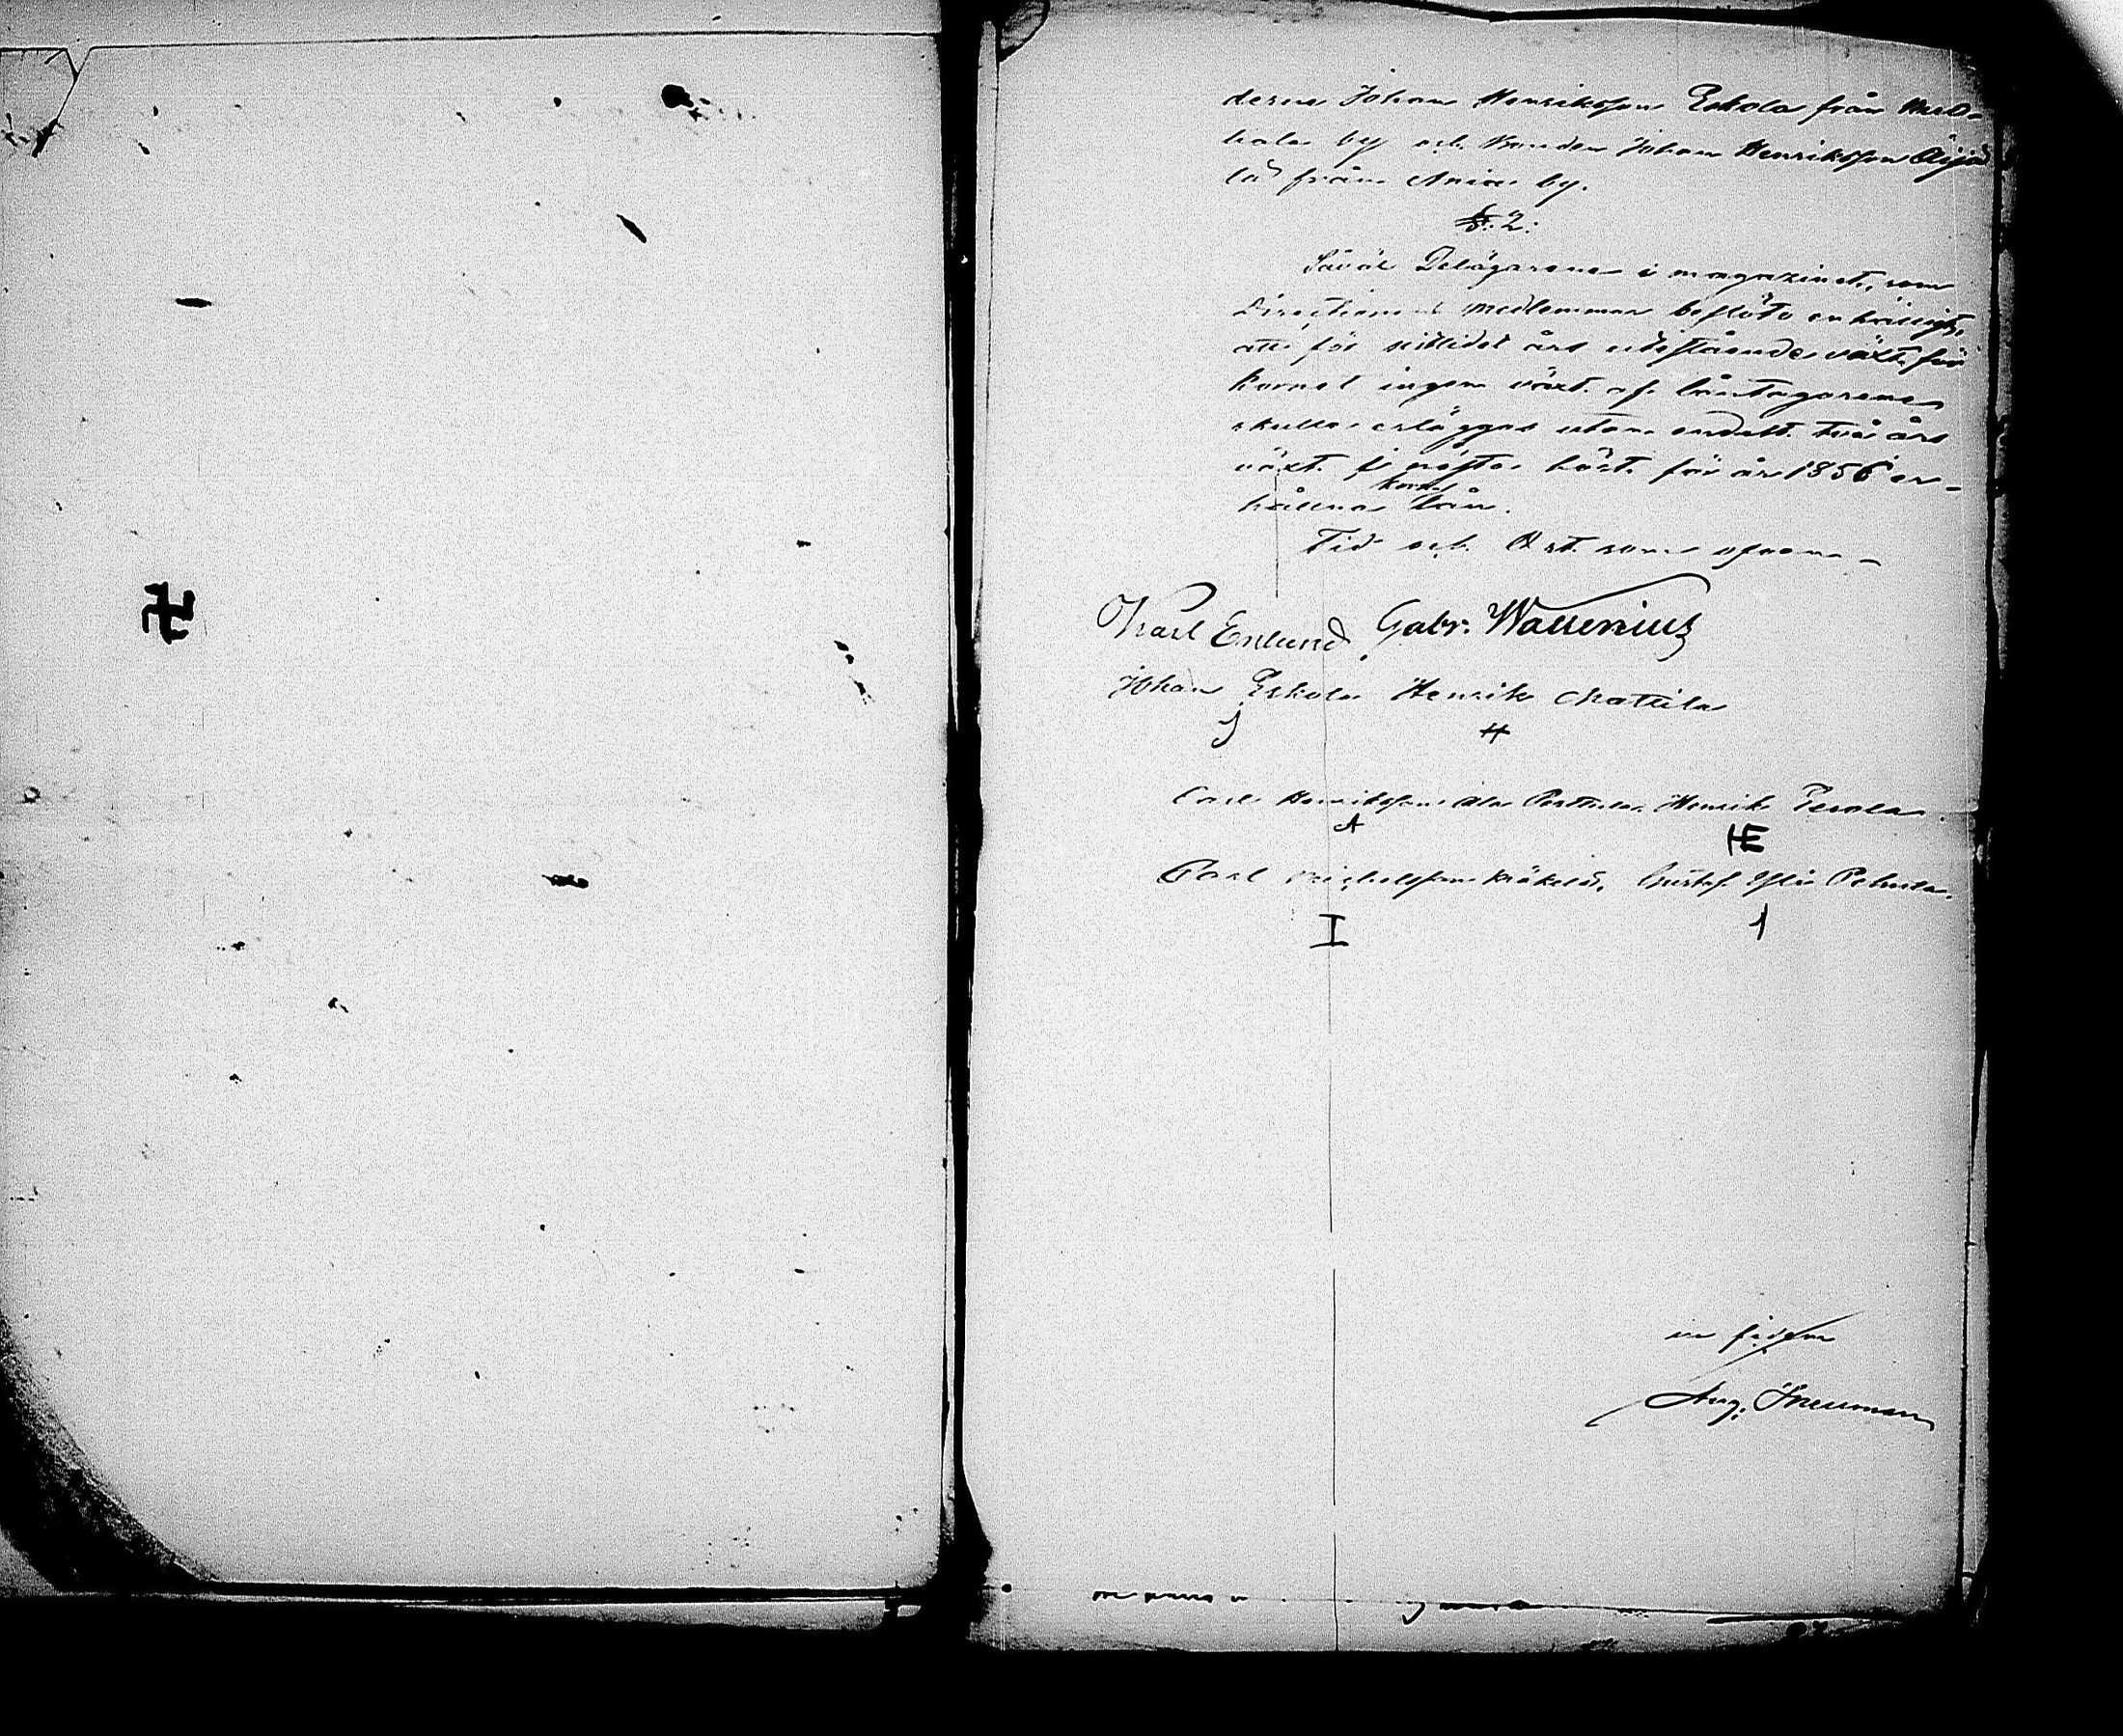 derne Johan Henriksson Eskola från
by och Bonden Johan Henriksson
från Ania by.
§. 2.
Såväl Delägarene i magazinet, som
Directionens medlemmar beslöto enhälligt,
att för sistlidet års utestående växt för
kornet ingen växt af låntagarene
skulle erläggas utan endast två års
växt i nästa höst för år 1856 er-
korn
hållna lån.
Tid och Ort som ofvan
Karl Enlund, Gabr. Wallenius
Johan Eskola Henrik Mattila
J H
Carl Henriksson Ala Perttula Henrik Perala.
A HE
Carl Michelsson Krökelä, Gustaf Yli Pehula.
I 1
in fidem
Aug. Snellman